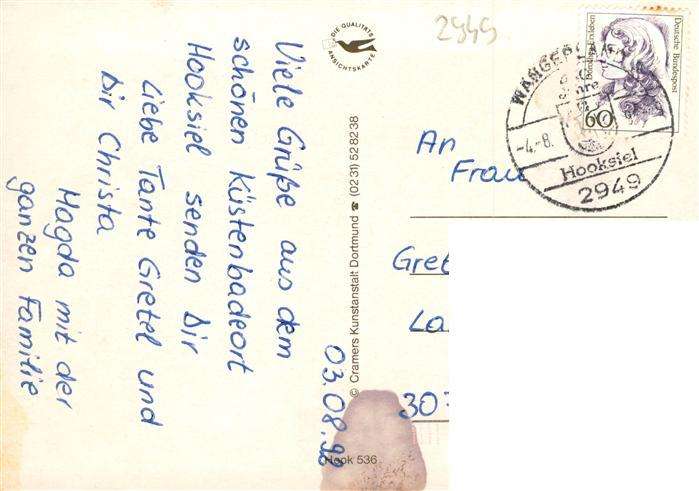 Viele Grüße aus dem
schönen Küstenbadeort
Hooksiel senden Dir
Liebe Tante Gretel und
Dir Christa
Magda mit der
ganzen Familie
03.08.90
DIE QUALITÄTS
ANSICHTSKARTE
© Cramers Kunstanstalt Dortmund ☎ (0231) 528238
Hook 536
2949
Deutsche Bundespost
60
-4.-8.
Hooksiel
2949
An
Frau
Gret
La
30